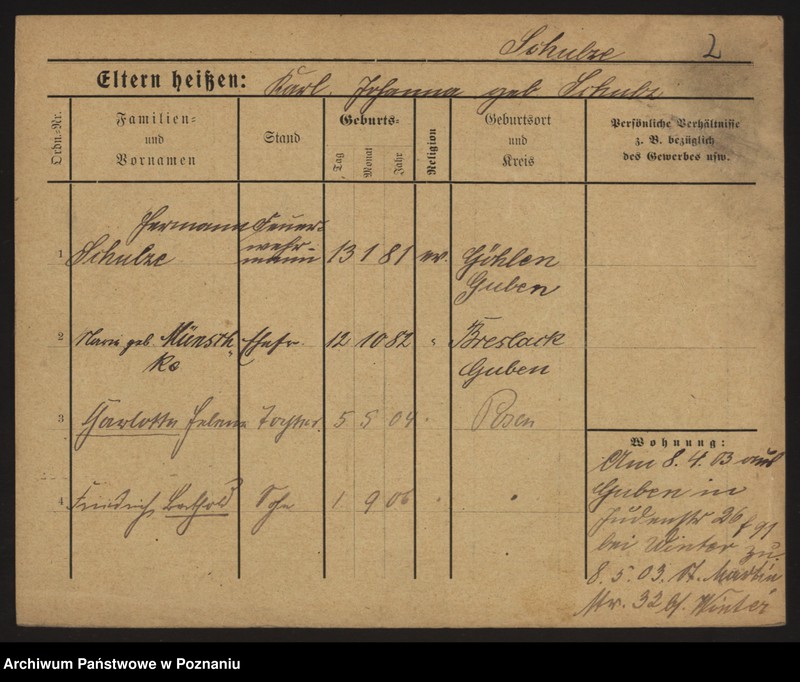 Schulze 2
Eltern heißen: Karl, Johanna geb. Schulz
Ordn.-Nr.
Familien-
und
Vornamen
Stand
Geburts-
Tag
Monat
Jahr
Religion
Geburtsort
und
Kreis
Persönliche Verhältnisse
z. B. bezüglich
des Gewerbes usw.
Hermann Feuer-
1 Schulze wehr- 13 1 81 ev. Göhlen
mann
Guben
2 Marie geb. Münsch Ehefr. 12 10 82 " Breslack
ke Guben
3 Charlotte Helene Tochter 5 5 04 " Posen
4 Friedrich Berthold Sohn 1 9 06 " "
Wohnung:
Am 8.4.03 aus
Guben in
Judenstr 26
bei Winter zu.
8.5.03. St. Martin
Str. 32 b/ Winter